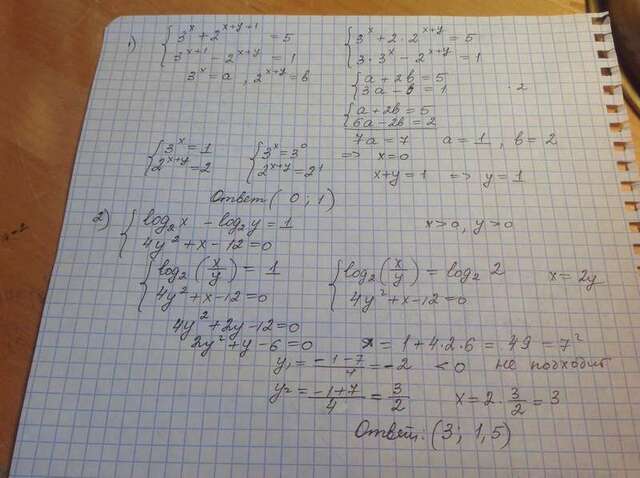 1) { 3^x + 2^{x+y+1} = 5   { 3^x + 2 · 2^{x+y} = 5
3^{x+1} - 2^{x+y} = 1   3 · 3^x - 2^{x+y} = 1
3^x = a , 2^{x+y} = b   { a + 2b = 5
3a - b = 1   · 2
{ a + 2b = 5
6a - 2b = 2
7a = 7   a = 1 , b = 2
{ 3^x = 1   { 3^x = 3^0   => x = 0
2^{x+y} = 2   2^{x+y} = 2^1   x + y = 1   => y = 1
Ответ ( 0 ; 1 )
2) { log_2 x - log_2 y = 1   x > 0, y > 0
4y^2 + x - 12 = 0
{ log_2 (x/y) = 1   { log_2 (x/y) = log_2 2   x = 2y
4y^2 + x - 12 = 0   4y^2 + x - 12 = 0
4y^2 + 2y - 12 = 0
2y^2 + y - 6 = 0   D = 1 + 4 · 2 · 6 = 49 = 7^2
y_1 = (-1-7)/4 = -2 < 0 не подходит
y_2 = (-1+7)/4 = 3/2   x = 2 · 3/2 = 3
Ответ: (3 ; 1,5)